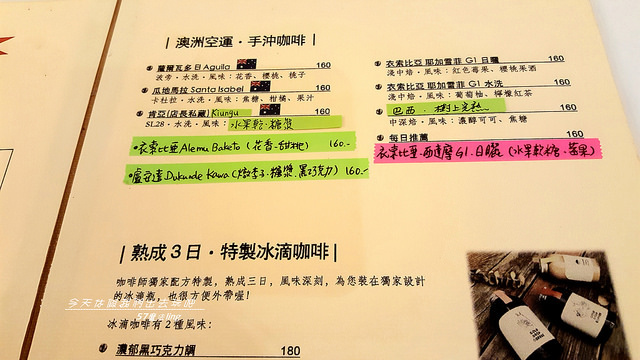 | 澳洲空運・手沖咖啡 |
薩爾瓦多日Aguila 160
波旁・水洗・風味：花香、櫻桃、桃子
瓜地馬拉 Santa Isabel 160
卡杜拉・水洗・風味：焦糖、柑橘、果汁
肯亞(店長私藏) Kiungu 160
SL28・水洗・風味：水果乾・糖漿
•衣索比亞 Alemu Bakato (花香・甜桃) 160.-
•盧安達 Dukunde Kawa (糖漿・黑巧克力) 160.-
衣索比亞 耶加雪菲 G1 日曬 160
淺中焙・風味：紅色莓果、櫻桃果酒
衣索比亞 耶加雪菲 G1 水洗 160
淺中焙・風味：葡萄柚、檸檬紅茶
巴西・樹上完熟 160
中深焙・風味：濃醇可可、焦糖
每日推薦 160
衣索比亞・西達摩G1・日曬 (水果軟糖・莓果)
| 熟成3日・特製冰滴咖啡 |
咖啡師獨家配方特製，熟成三日，風味深刻，為您裝在獨家設計
的冰滴瓶，也很方便外帶喔！
冰滴咖啡有2種風味：
濃郁黑巧克力調 180